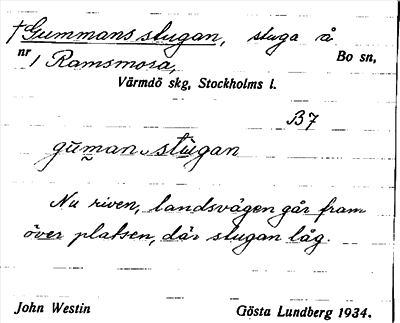 †Gummansstugan, stuga å
nr 1 Ramsmora, Bo sn,
Värmdö skg, Stockholms l.
B7
guman stugan
Nu riven, landsvägen går fram
över platsen, där stugan låg.
John Westin Gösta Lundberg 1934.